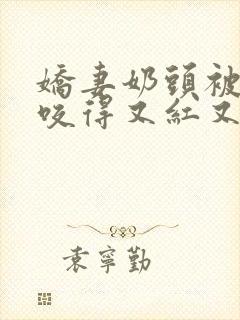 嬌妻奶頭被
咬得又紅又
袁寧勤